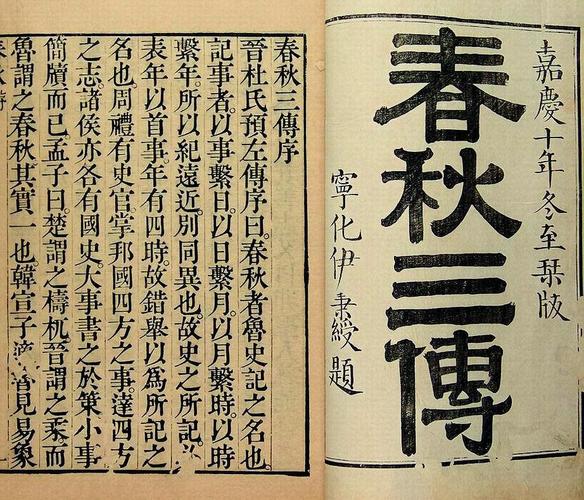 嘉慶十年冬至栞版
春秋三傳
寧化伊秉綬題
春秋三傳序
晉杜氏預左傳序曰。春秋者魯史記之名也
記事者。以事繫日。以日繫月。以月繫時。以時
繫年。所以紀遠近。別同異也。故史之所記。
表年以首事。年有四時。故錯舉以為所記之
名也。周禮有史官掌邦國四方之事。達四方
之志。諸侯亦各有國史。大事書之於策。小事
簡牘而已。孟子曰。楚謂之檮杌。晉謂之乘。而
魯謂之春秋。其實一也。韓宣子見易象